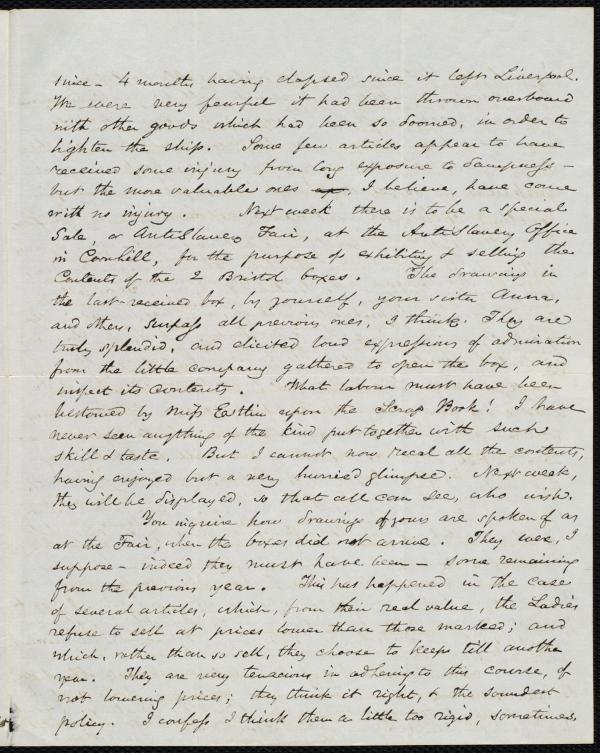 since - 4 months having elapsed since it left Liverpool.
We were very fearful it had been thrown overboard
with other goods which had been so doomed, in order to
lighten the ship. Some few articles appear to have
received some injury from long exposure to dampness -
but the more valuable ones , I believe, have come
with no injury. Next week there is to be a special
Sale, or AntiSlavery Fair, at the AntiSlavery Office
in Cornhill, for the purpose of exhibiting & selling the
Contents of the 2 Bristol boxes. The drawings in
the last-received box, by yourself, your sister Anna,
and others, surpass all previous ones, I think. They are
truly splendid, and elicited loud expressions of admiration
from the little company gathered to open the box, and
inspect its contents. What labour must have been
bestowed by Miss Estlin upon the Scrap Book! I have
never seen anything of the kind put together with such
skill & taste. But I cannot now recal all the contents,
having enjoyed but a very hurried glimpse. Next week,
they will be displayed, so that all can see, who wish.
You inquire how drawings of yours are spoken of as
at the Fair, when the boxes did not arrive. They were, I
suppose - indeed they must have been - some remaining
from the previous year. This has happened in the case
of several articles, which, from their real value, the Ladies
refuse to sell at prices lower than those marked; and
which, rather than so sell, they choose to keep till another
year. They are very tenacious in adhering to this course, of
not lowering prices; they think it right, & the soundest
policy. I confess I think them a little too rigid, sometimes